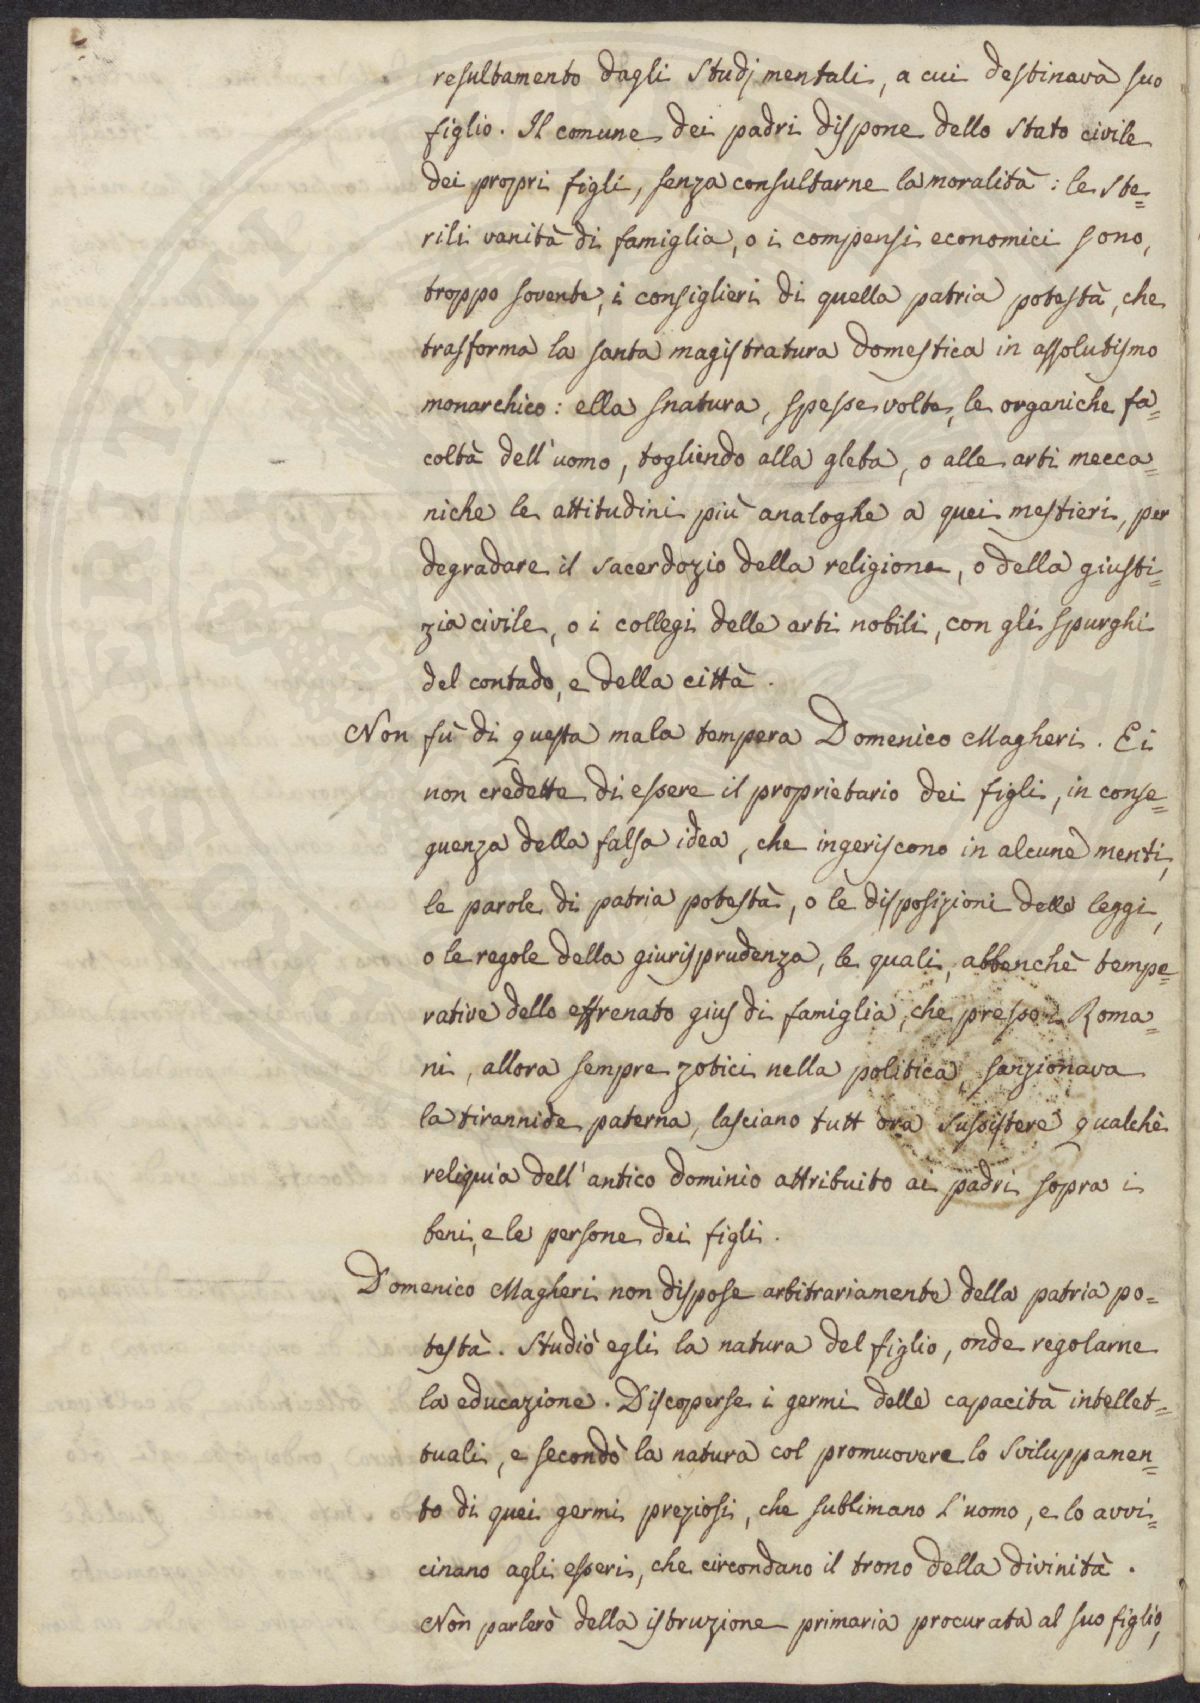 resultamento dagli studj mentali, a cui destinava suo
figlio. Il comune dei padri dispone dello stato civile
dei propri figli, senza consultarne la moralità: le ste=
rili vanità di famiglia, o i compensi economici sono,
troppo sovente, i consiglieri di quella patria potestà, che
trasforma la santa magistratura domestica in assolutismo
monarchico: ella snatura, spesse volte, le organiche fa=
coltà dell'uomo, togliendo alla gleba, o alle arti mecca=
niche le attitudini più analoghe a quei mestieri, per
degradare il sacerdozio della religione, o della giusti=
zia civile, o i collegi delle arti nobili, con gli spurghi
del contado, e della città.
Non fù di questa mala tempera Domenico Magheri. Ei
non credette di essere il proprietario dei figli, in conse=
guenza della falsa idea, che ingeriscono in alcune menti,
le parole di patria potestà, o le disposizioni delle leggi,
o le regole della giurisprudenza, le quali, abbenchè tempe=
rative dello effrenato gius di famiglia, che presso i Roma=
ni, allora sempre zotici nella politica, sanzionava
la tirannide paterna, lasciano tutt'ora sussistere qualche
reliquia dell'antico dominio attribuito ai padri sopra i
beni, e le persone dei figli.
Domenico Magheri non dispose arbitrariamente della patria po=
testà. Studiò egli la natura del figlio, onde regolarne
la educazione. Discoperse i germi delle capacità intellet=
tuali, e secondò la natura col promuovere lo sviluppamen=
to di quei germi preziosi, che sublimano l'uomo, e lo avvi=
cinano agli esseri, che circondano il trono della divinità.
Non parlerò della istruzione primaria procurata al suo figlio,